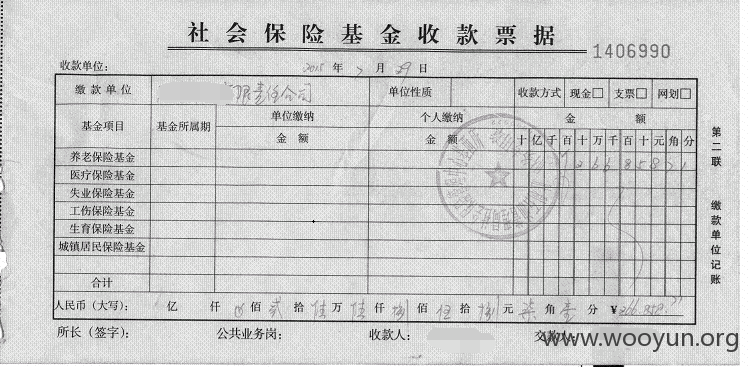 社会保险基金收款票据
1406990
收款单位： 2015 年 7 月 29 日
缴款单位 限责任公司 单位性质 收款方式 现金□ 支票□ 网划□
基金项目 基金所属期 单位缴纳 金额 个人缴纳 金额 金额
十 亿 千 百 十 万 千 百 十 元 角 分
养老保险基金 2 6 6 8 5 8 7 1
医疗保险基金
失业保险基金
工伤保险基金
生育保险基金
城镇居民保险基金
合计
人民币（大写）： 亿 仟 佰 贰 拾 陆 万 陆 仟 捌 佰 伍 拾 捌 元 柒 角 壹 分 ¥266858.71
所长（签字）： 公共业务岗： 收款人： 交款人：
第二联 缴款单位记账
www.wooyun.org